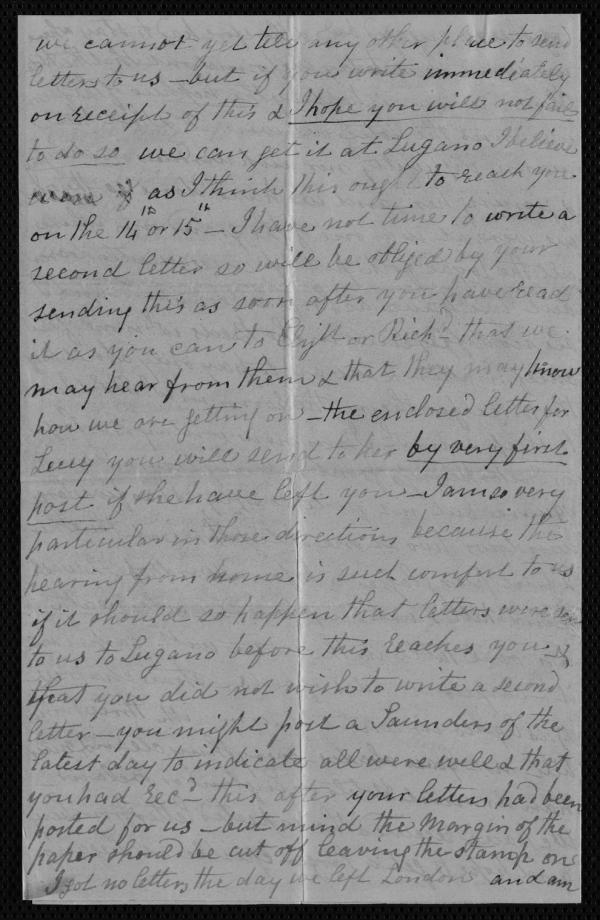 we cannot yet tell any other place to send
letters to us – but if you write immediately
on receipt of this & I hope you will not fail
to do so we can get it at Lugano I believe
as I think this ought to reach you
on the 14th or 15th – I have not time to write a
second letter so will be obliged by your
sending this as soon after you have read
it as you can to Elizth or Richd – that we
may hear from them & that they may know
how we are getting on – the enclosed letter for
Lucy you will send to her by very first
post if she have left you – I am so very
particular in those directions because the
hearing from home is such comfort to us
if it should so happen that letters were sent
to us to Lugano before this reaches you &
that you did not wish to write a second
letter – you might post a Saunders of the
latest day to indicate all were well & that
you had recd – this after your letters had been
posted for us – but mind the Margin of the
paper should be cut off leaving the stamp on
I got no letters the day we left London and am